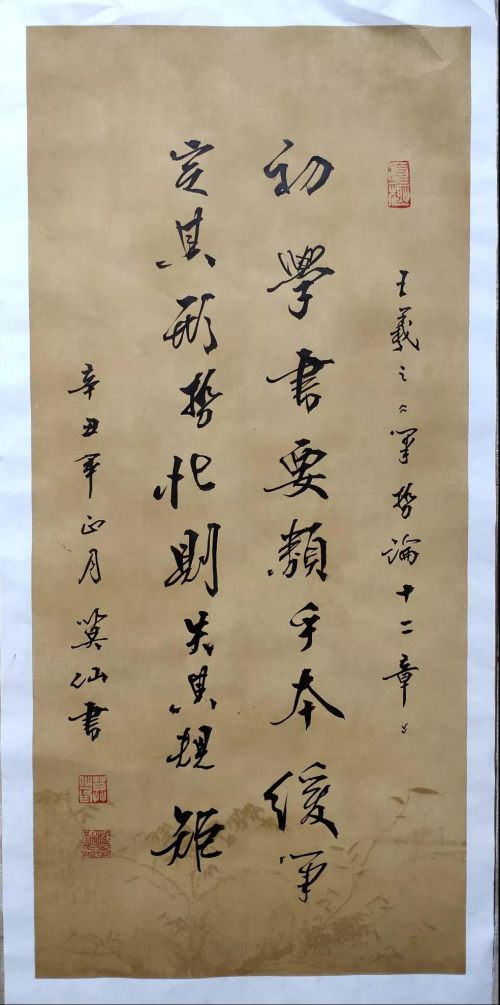 王羲之《笔势论十二章》
初學書要類乎本緩筆
定其形势忙則失其規矩
辛丑年正月 笑仙書